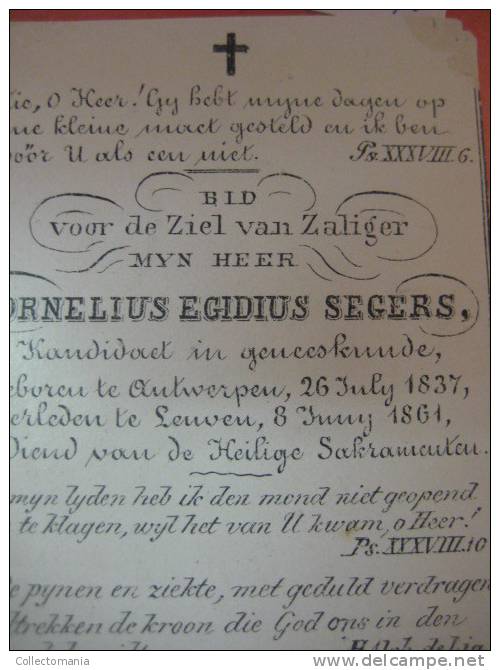 Zie, o Heer! Gy hebt myne dagen op
eene kleine maet gesteld en ik ben
vóór U als een niet. Ps. XXXVIII. 6.
BID
voor de Ziel van Zaliger
MYN HEER
CORNELIUS EGIDIUS SEGERS,
Kandidaet in geneeskunde,
geboren te Antwerpen, 26 July 1837,
overleden te Leuven, 8 Juny 1861,
Diend van de Heilige Sakramenten.
myn lyden heb ik den mond niet geopend
te klagen, wyl het van U kwam, o Heer!
Ps. XXXVIII. 10
pynen en ziekte, met geduld verdragen
trekken de kroon die God ons in den
de Lig
Collectomania
delcampe.net